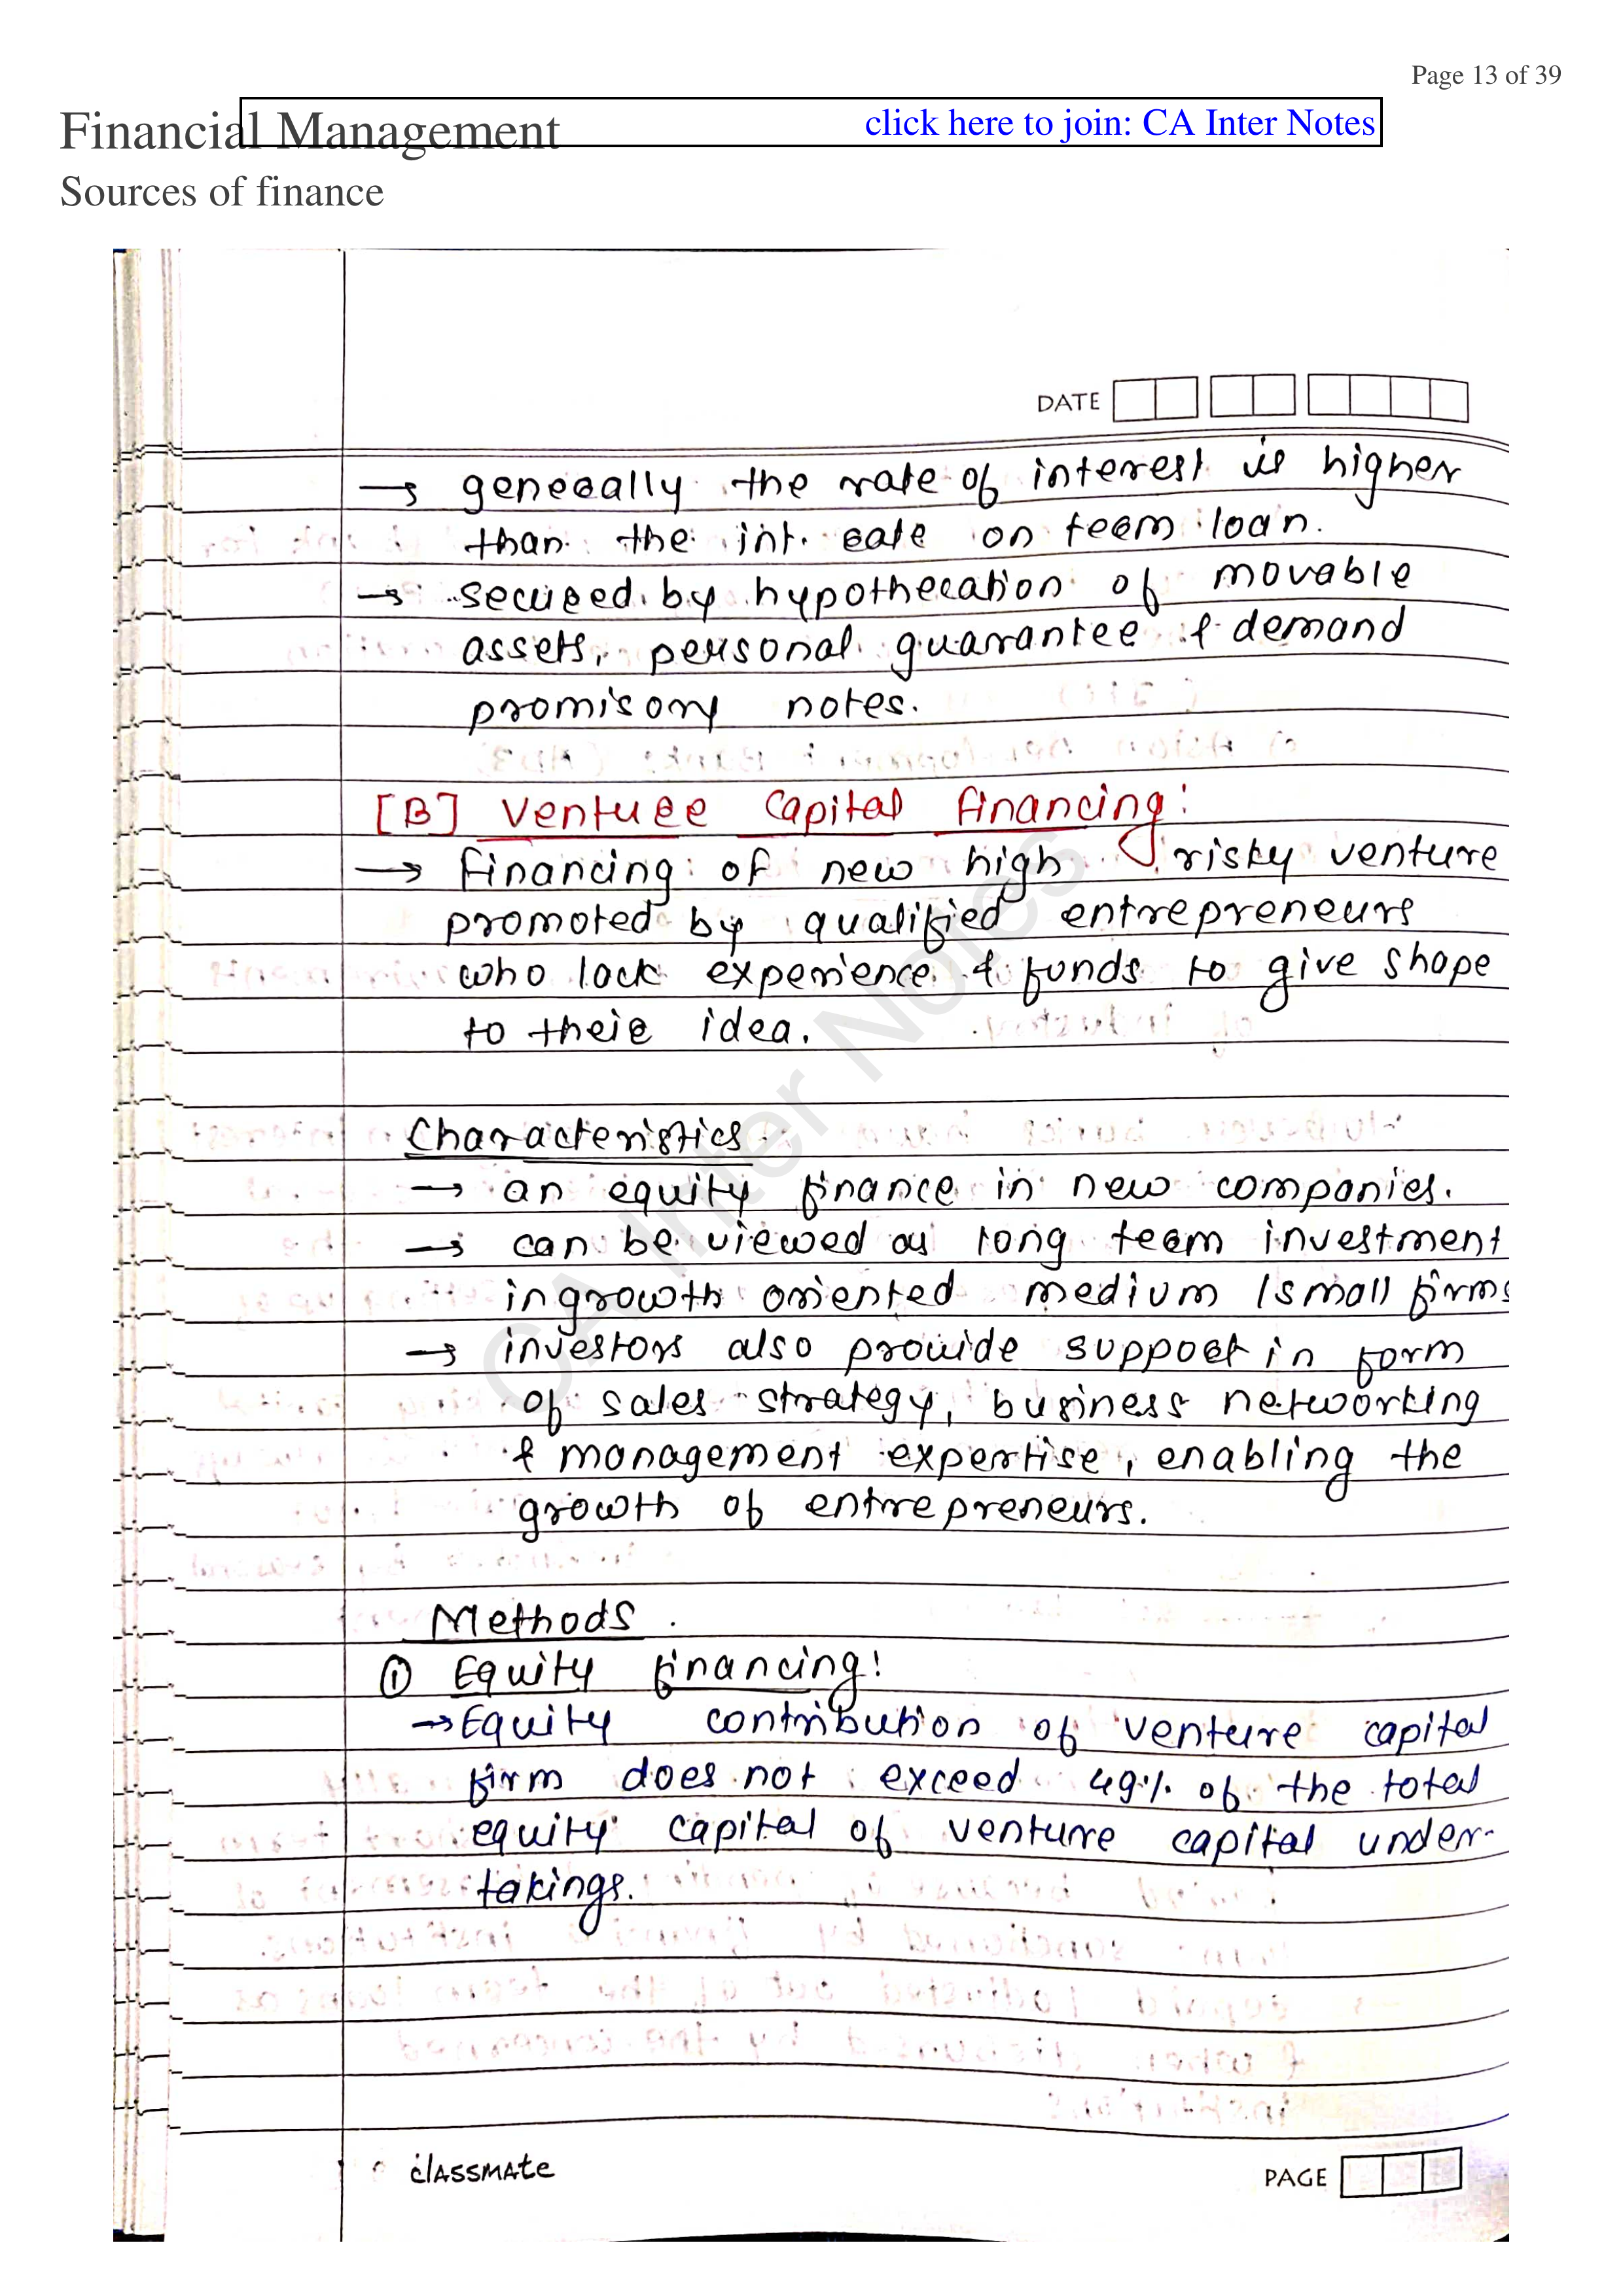 Page 13 of 39
Financial Management
click here to join: CA Inter Notes
Sources of finance
DATE
→ generally the rate of interest is higher
than the int. rate on term loan.
→ secured by hypothecation of movable
assets, personal guarantee & demand
promisory notes.
[B] Venture Capital financing:
→ financing of new high risky venture
promoted by qualified entrepreneurs
who lack experience & funds to give shape
to their idea.
Characteristics
→ an equity finance in new companies.
→ can be viewed as long term investment
in growth oriented medium / small firms
→ investors also provide support in form
of sales strategy, business networking
& management expertise, enabling the
growth of entrepreneurs.
Methods
① Equity financing:
→ Equity contribution of venture capital
firm does not exceed 49% of the total
equity capital of venture capital under-
takings.
classmate
PAGE
CA Inter Notes